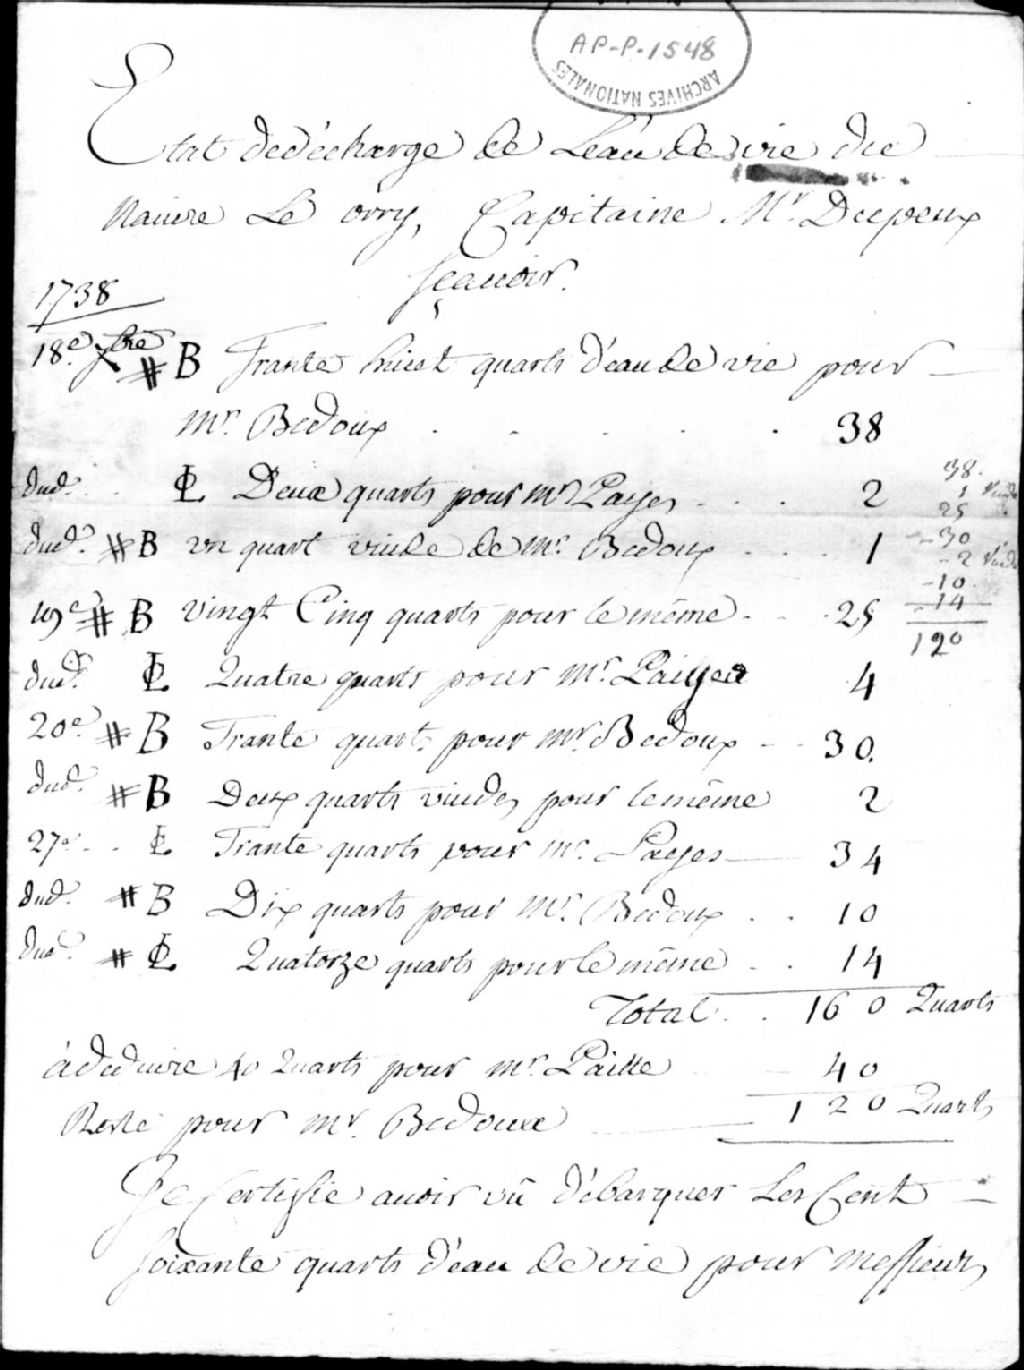 AP-P-1548
ARCHIVES NATIONALES
Etat de décharge de Léau de vie du
Navire Le orry, Capitaine Mr. Dupeux
sçauoir.
1738
18e. 7bre # B Trante huict quarts d'eau de vie pour
mr. Bedoux . . . . . 38
dud. . . L Deux quarts pour mr Payes . . . 2
dud. # B vn quart viude de Mr. Bedoux . . . 1
19e # B Vingt Cinq quarts pour le méme . . . 25
dud. L Quatre quarts pour Mr. 4
20e. # B Trante quarts pour mr. Bedoux - - 30.
dud. # B Deux quarts viudes pour leméme 2
27e. . . L Trante quarts pour mr. Payes 34
dud. # B Dix quarts pour Mr. Bedoux . . 10
dud. # L Quatorze quarts pour le méme . . 14
Total . . 160 Quarts
à deduire 40 Quarts pour mr. Paille 40
Reste pour Mr. Bedoux 120 Quarts
38.
1 viude
25
-30
-2 viude
-10.
14
120
Je Certiffie auoir vû débarquer Les Cent
soixante quarts d'eau de vie pour messieurs